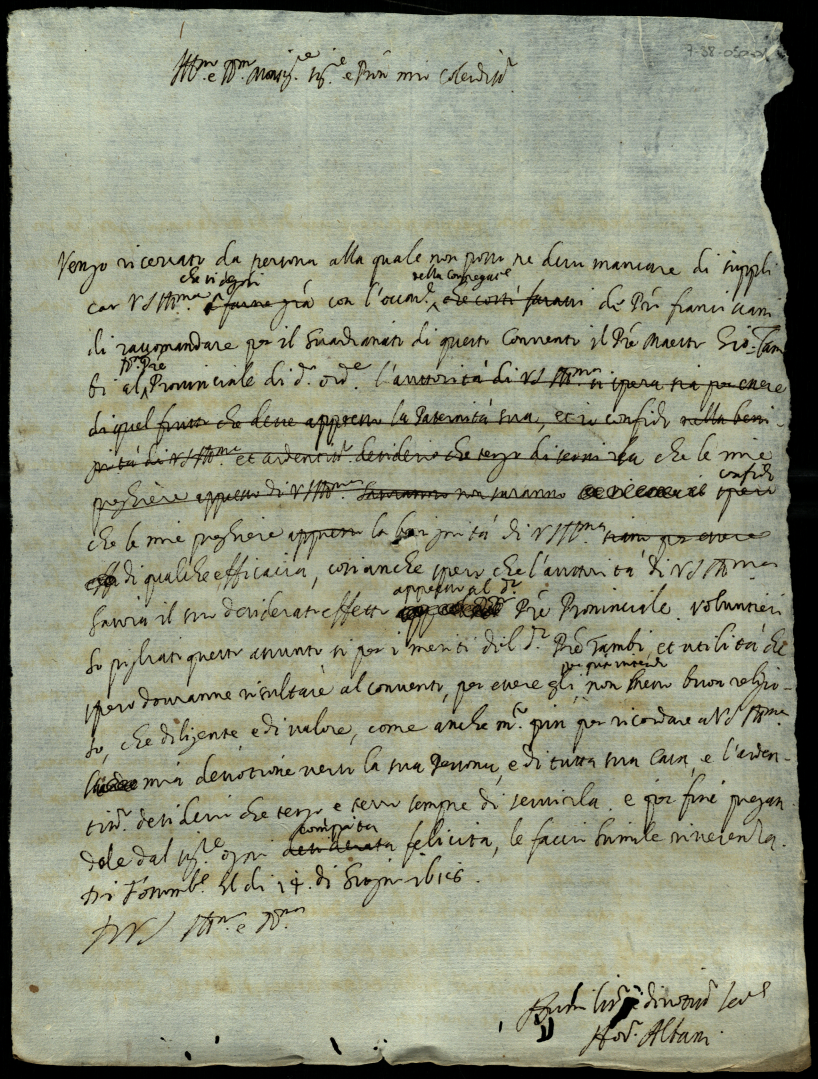 7-38-050-01
Ill.mo e R.mo Monsig.re Sig.re e Pron mio Colendiss.o
Vengo ricercato da persona alla quale non posso ne devo mancare di suppli
che si degni nella Congregat.e
car VS Ill.ma farne già con l'occas.e che costì farassi de Pri franciscani
di raccomandare per il Guardianato di questo Convento il Pre Maestro Gio: Tam
R.mo Pre
bi al Provinciale di d.o ord.e l'auttorità di VS Ill.ma si spera sia per essere
di quel frutto che deve appresso la Paternità sua, et io confido nella beni
gnità di VS Ill.ma et ardentiss.o desiderio che tengo di servirla che le mie
confido
preghiere appresso di VS Ill.ma saranno non saranno spero
che le mie preghiere appresso la benignità di VS Ill.ma siano per essere
di qualche efficacia, così anche spero che l'auttorità di VS Ill.ma
appresso al d.o
havrà il suo desiderato effetto Pre Provinciale. Voluntieri
ho pigliato questo assunto si per i meriti del d.o Pre Tambi, et utilità che
per quanto intendo
spero dovranne risultare al convento, per essere egli non meno buon religio-
so, che diligente e di valore, come anche m.o più per ricordare a VS Ill.ma
mia devotione verso la sua Persona, e di tutta sua Casa, e l'arden-
tiss.o desiderio che tengo e terrò sempre di servirla. e per fine pregan
compita
dole dal Sig.re ogni desiderata felicità, le faccio humile riverenza.
Di Fossomb.e El di 14. di Giugno 1616.
Di VS Ill.ma e R.ma
Humiliss.o e divotiss.o Ser.e
Hor.o Albani.